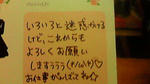 いろいろと迷惑かける
けど、これからも
よろしくお願い
しますううう(*ﾉωﾉ)♡
お仕事がんばってね♡